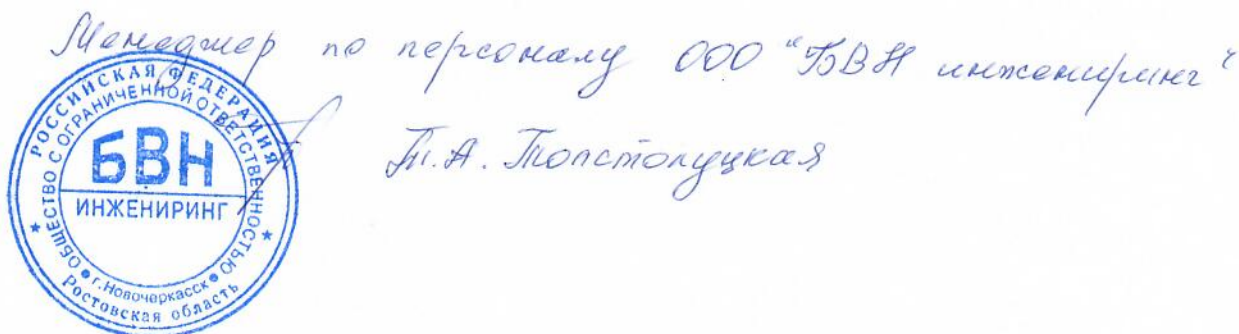 Менеджер по персоналу ООО "БВН инжениринг"
Т.А. Толстолуцкая
РОССИЙСКАЯ ФЕДЕРАЦИЯ
ОБЩЕСТВО С ОГРАНИЧЕННОЙ ОТВЕТСТВЕННОСТЬЮ
БВН
ИНЖЕНИРИНГ
г. Новочеркасск
Ростовская область